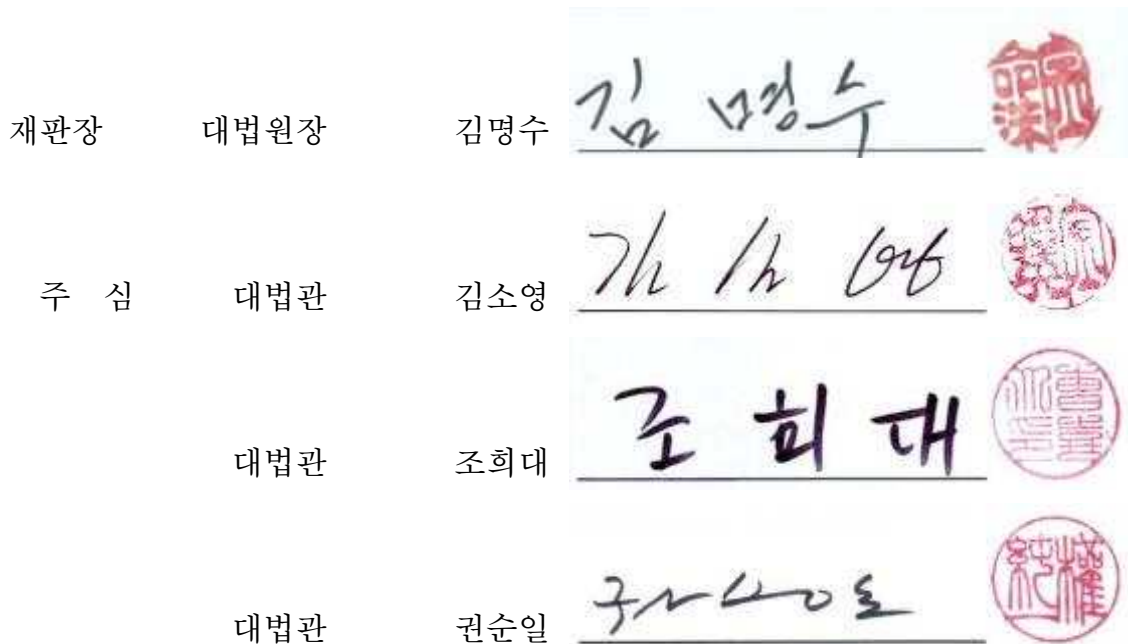 재판장 대법원장 김명수 김 명수
주 심 대법관 김소영 김 소 영
대법관 조희대 조 희 대
대법관 권순일 권순일